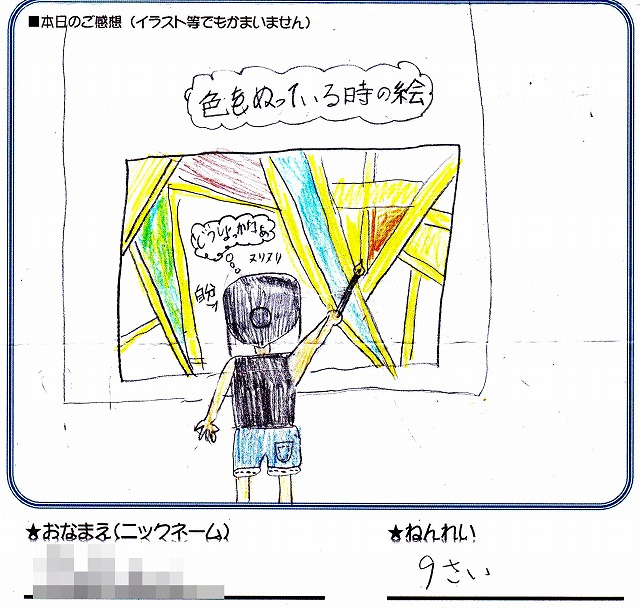 ■本日のご感想（イラスト等でもかまいません）
色をぬっている時の絵
どうしよっかなぁ
ヌリヌリ
自分
★おなまえ(ニックネーム)
★ねんれい
9さい